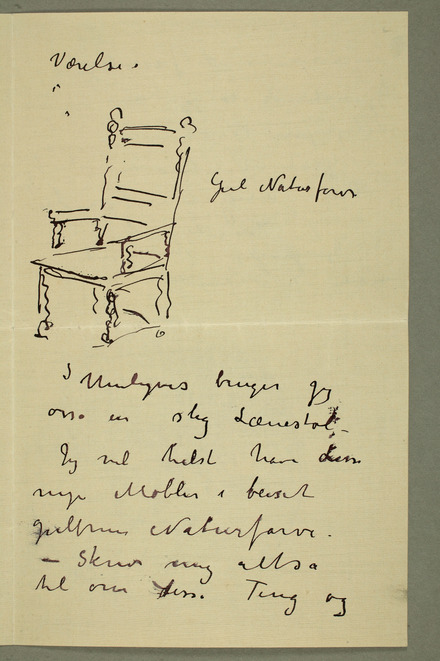 Værelse.
Gul Naturfarve
Muligvis bruger jeg
osso en slig Lænestol -
Jeg vil helst have disse
nye Møbler i beiset
gulbrun Naturfarve.
– Skriv mig altsa
til om disse Ting og